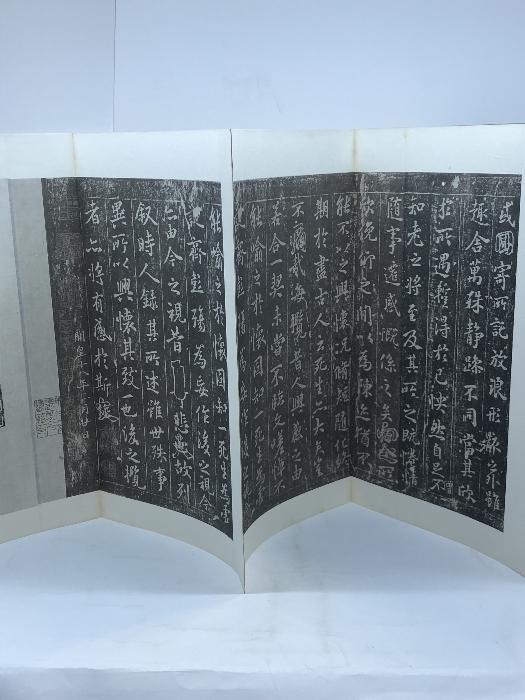 或因寄所託放浪形骸之外雖
趣舍萬殊靜躁不同當其欣
於所遇蹔得於己怏然自足不
知老之將至及其所之既惓情
隨事遷感慨係之矣向之所
欣俛仰之間以為陳迹猶不
能不以之興懷況脩短隨化終
期於盡古人云死生亦大矣豈
不痛哉每攬昔人興感之由
若合一契未嘗不臨文嗟悼不
能喻之於懷固知一死生為虛
誕齊彭殤為妄作後之視今
能喻之於懷固知一死生為虛
誕齊彭殤為妄作後之視今
亦由今之視昔悲夫故列
敘時人錄其所述雖世殊事
異所以興懷其致一也後之攬
者亦將有感於斯文
開皇年月日